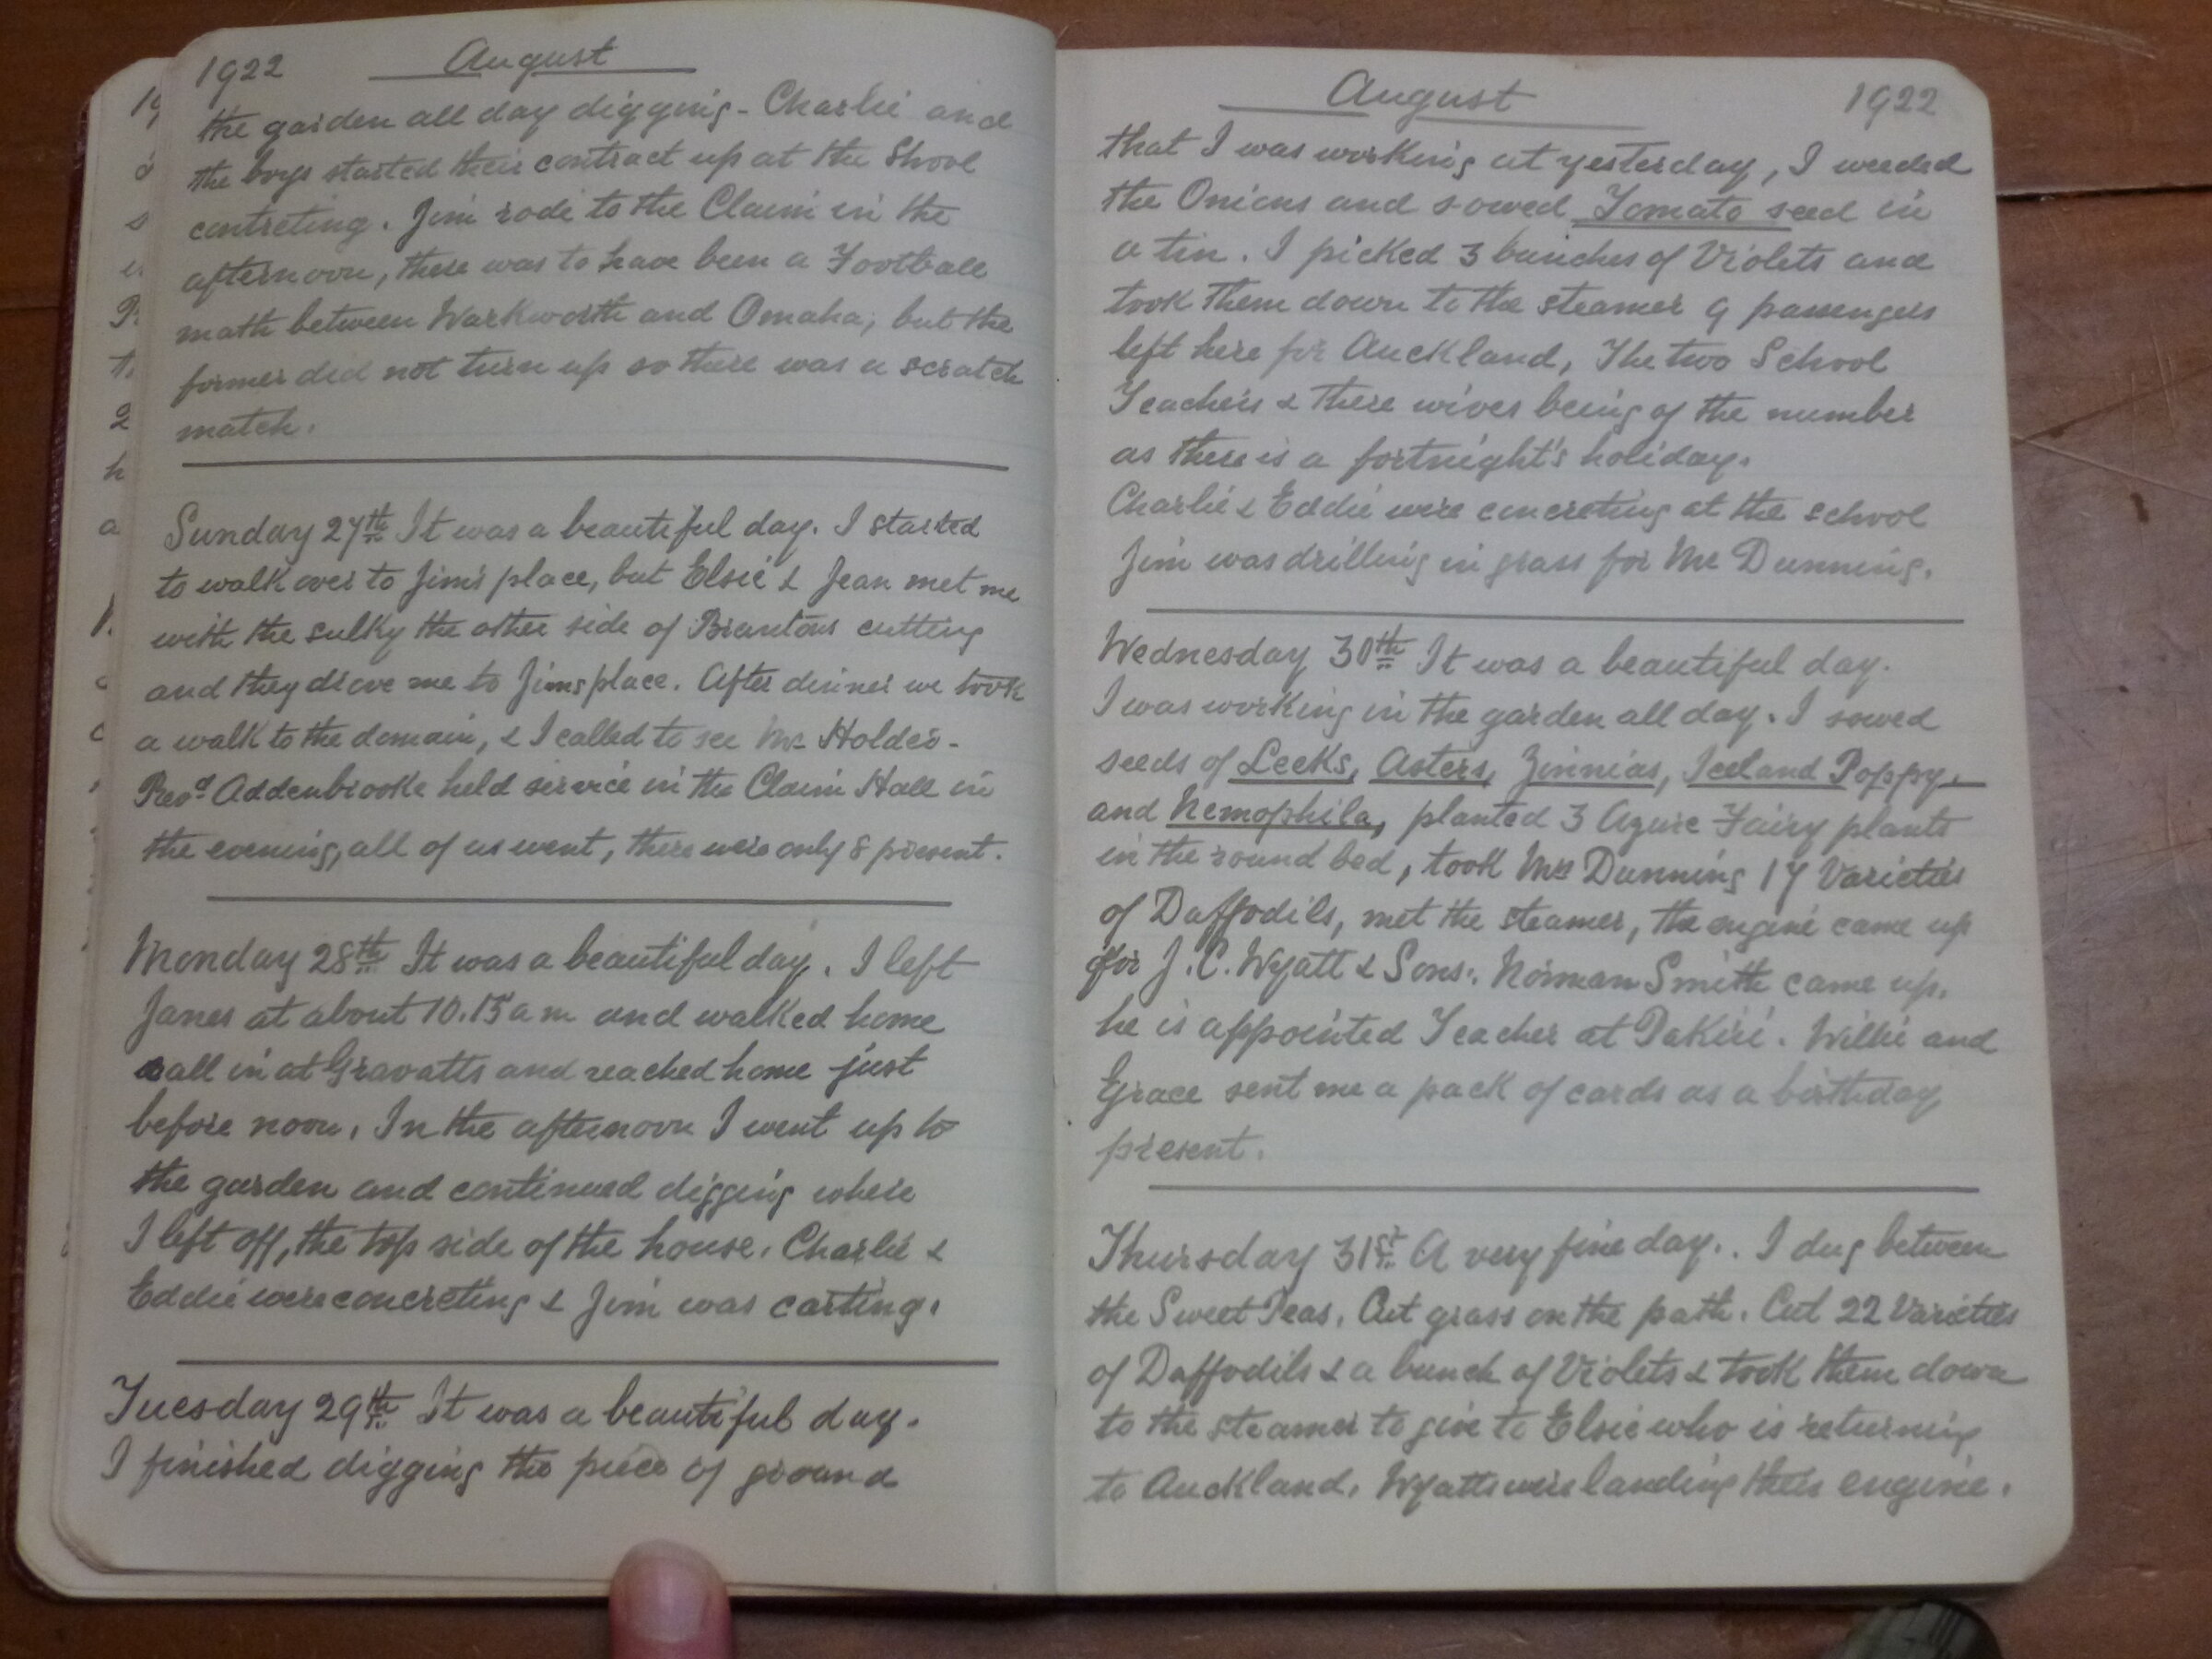 1922 August
the garden all day digging - Charlie and
the boys started their contract up at the Shool
contreting. Jim rode to the Claim in the
afternoon, there was to have been a Football
math between Warkworth and Omaha, but the
former did not turn up so there was a scratch
match.
Sunday 27th It was a beautiful day. I started
to walk over to Jim's place, but Elsie & Jean met me
with the sulky the other side of cutting
and they drove me to Jims place. After dinner we took
a walk to the domain, & I called to see Holder -
Revd Addenbrooke held service in the Claim Hall in
the evening, all of us went, there were only 8 present.
Monday 28th It was a beautiful day. I left
Janes at about 10.15 am and walked home
call in at Gravatts and reached home just
before noon. In the afternoon I went up to
the garden and continued digging where
I left off, the top side of the house. Charlie &
Eddie were concreting & Jim was carting.
Tuesday 29th It was a beautiful day.
I finished digging the piece of ground
August 1922
that I was working at yesterday, I weeded
the Onions and sowed Tomato seed in
a tin. I picked 3 bunches of Violets and
took them down to the steamer 9 passengers
left here for Auckland, The two School
Teachers & there wives being of the number
as there is a fortnight's holiday.
Charlie & Eddie were concreting at the school
Jim was drilling in grass for Mr Dunning.
Wednesday 30th It was a beautiful day.
I was working in the garden all day. I sowed
seeds of Leeks, Asters, Zinnias, Iceland Poppy,
and Nemophila, planted 3 Azure Fairy plants
in the round bed, took Mrs Dunning 17 Varieties
of Daffodils, met the steamer, the engine came up
for J. C. Wyatt & Sons. Norman Smith came up,
he is appointed Teacher at Pakiri. Willie and
Grace sent me a pack of cards as a birthday
present.
Thursday 31st A very fine day. I dug between
the Sweet Peas. Cut grass on the path. Cut 22 Varieties
of Daffodils & a bunch of Violets & took them down
to the steamer to give to Elsie who is returning
to Auckland. Wyatts were landing their engine.